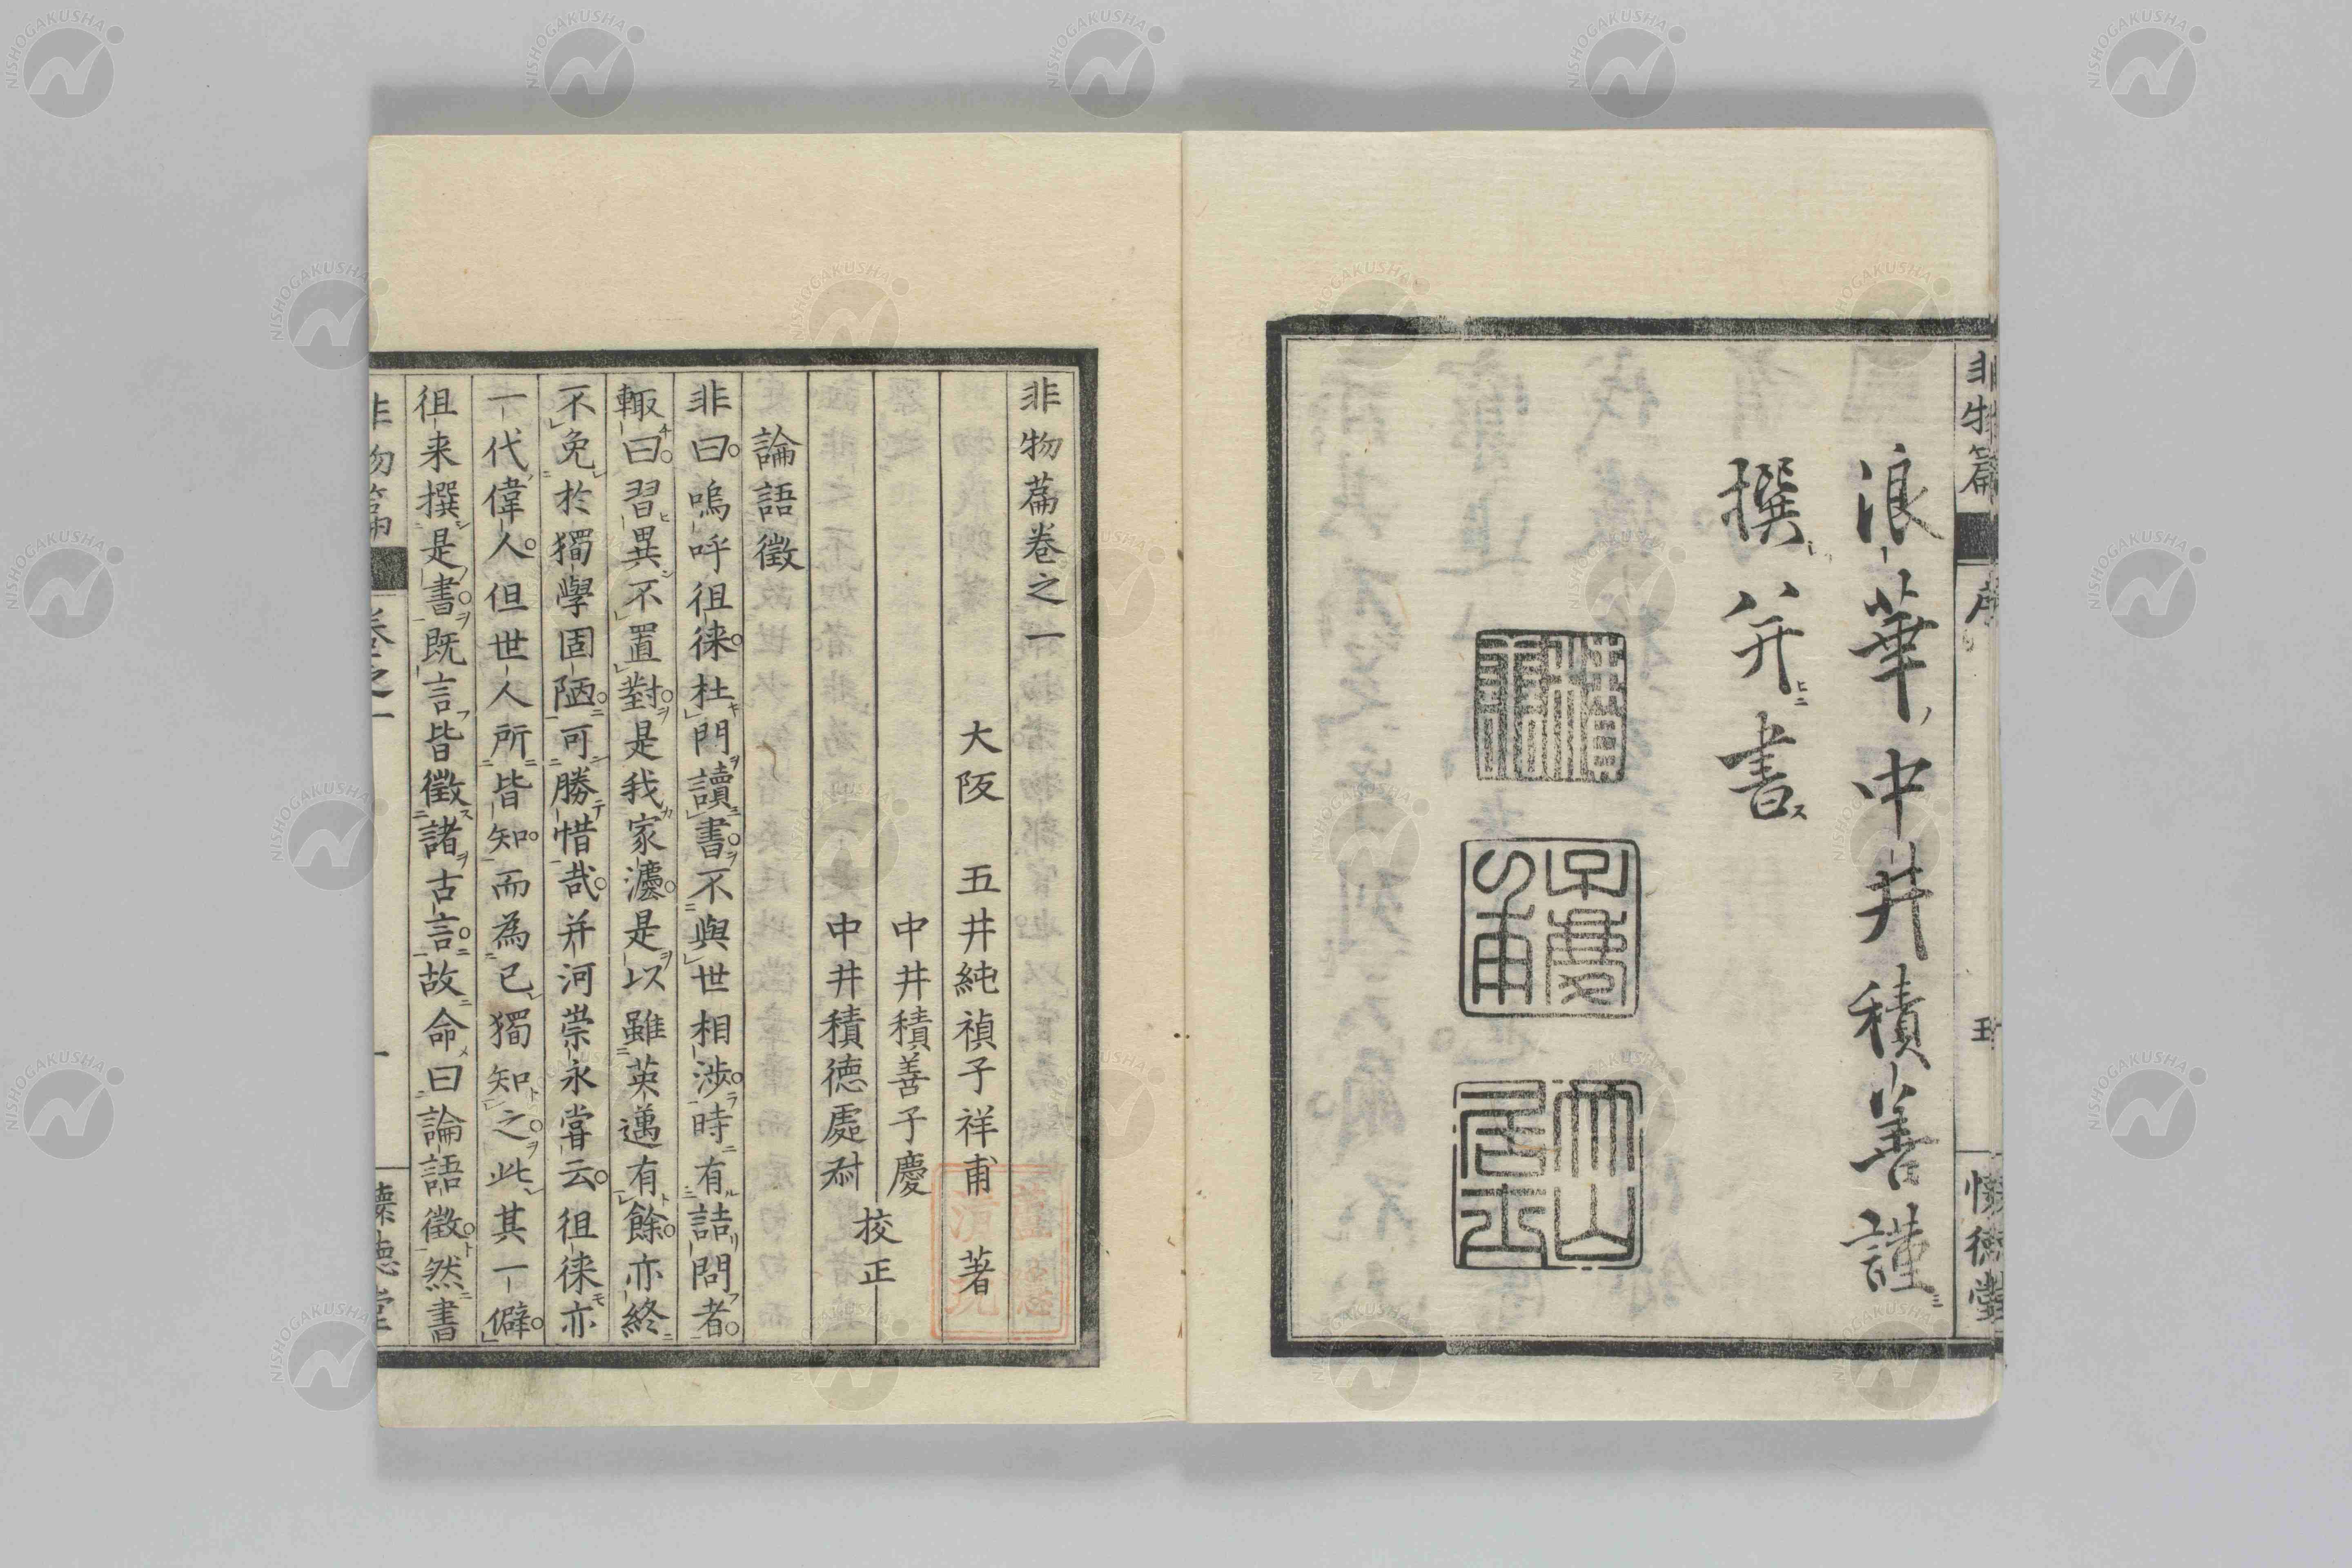 非物篇
序
五
懷德堂
浪華中井積善謹
撰并書
積善
子慶
父
竹山
居士
非物篇卷之一
大阪　五井純禎子祥甫　著
中井積善子慶
中井積德處叔
校正
論語徵
非曰嗚呼徂徠杜門讀書不與世相涉時有詰問者
輙曰習異不置對是我家灋是以雖英邁有餘亦終
不免於獨學固陋可勝惜哉并河崇永嘗云徂徠亦
一代偉人但世人所皆知而為己獨知之此其一僻
徂来撰是書既言皆徵諸古言故命曰論語徵然書
非物篇
卷之一
一
懷德堂
NISHOGAKUSHA